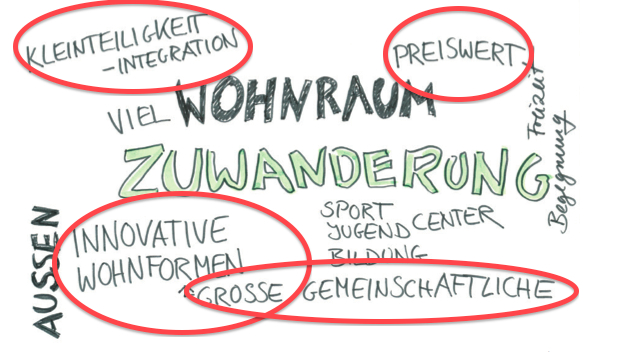 KLEINTEILIGKEIT
-INTEGRATION
PREISWERT
VIEL WOHNRAUM
Freizeit
Begegnung
ZUWANDERUNG
AUSSEN
INNOVATIVE
WOHNFORMEN
SPORT
JUGENDCENTER
BILDUNG
GROSSE GEMEINSCHAFTLICHE